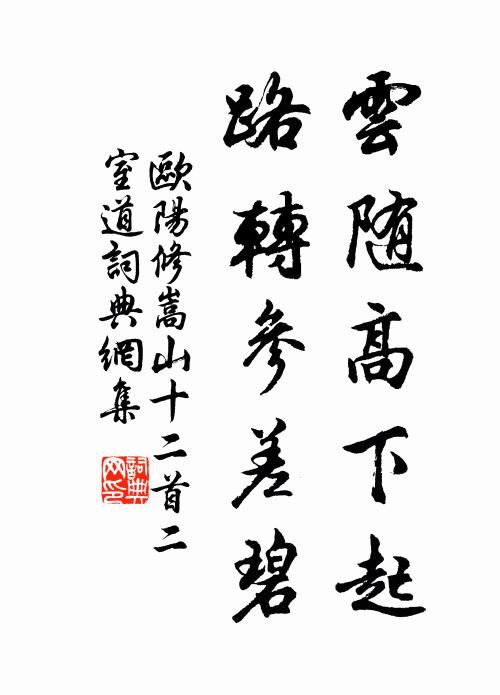 雲随高下起
路轉參差碧
歐陽修嵩山十二首二
室道詞典網集
詞典網印